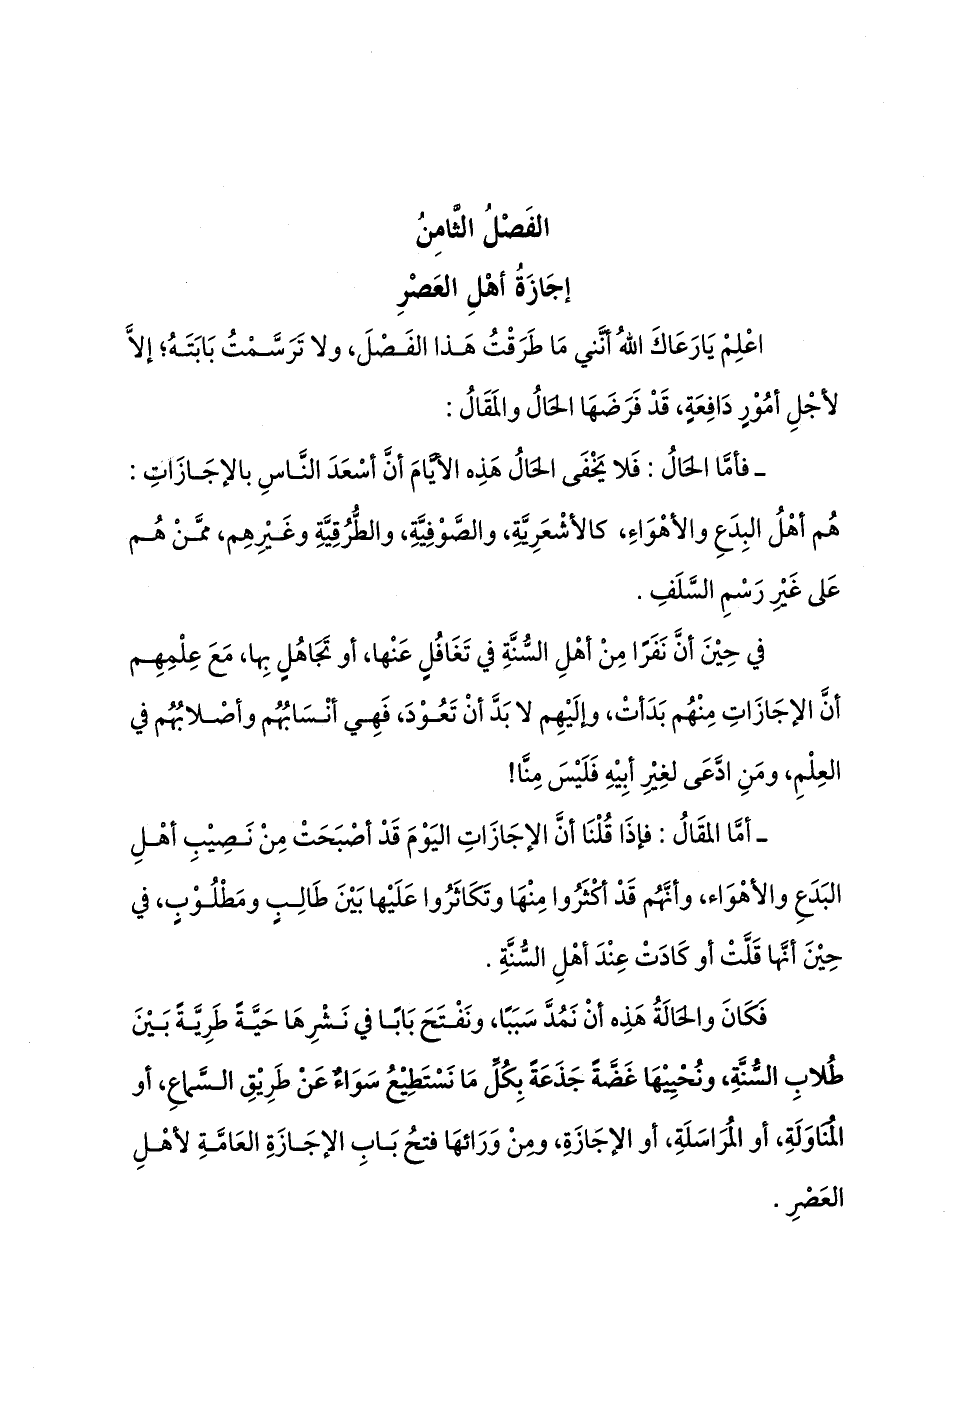 الفَصْلُ الثَّامِنُ
إجَازَةُ أهْلِ العَصْرِ
اعْلِمْ يَارَعَاكَ اللهُ أنَّني مَا طَرَقْتُ هَـذا الفَـصْلَ، ولا تَرَسَّـمْتُ بَابَتَـهُ؛ إلاَّ
لأجْلِ أمُوْرٍ دَافِعَةٍ، قَدْ فَرَضَهَا الحَالُ والمَقَالُ :
ـ فأمَّا الحَالُ : فَلا يَخْفَى الحَالُ هَذِه الأيَّامَ أنَّ أسْعَدَ النَّاسِ بالإجَـازَاتِ :
هُم أهْلُ البِدَعِ والأهْوَاءِ، كالأشْعَرِيَّةِ، والصُّوْفِيَّةِ، والطُّرُقِيَّةِ وغَـيْرِهِم، ممَّـنْ هُـم
عَلى غَيْرِ رَسْمِ السَّلَفِ .
في حِيْنَ أنَّ نَفَرًا مِنْ أهْلِ السُّنَّةِ في تَغَافُلٍ عَنْها، أو تَجَاهُلٍ بِها، مَعَ عِلْمِهِـم
أنَّ الإجَازَاتِ مِنْهُم بَدَأتْ، وإلَيْهِم لا بَدَّ أنْ تَعُوْدَ، فَهِـي أنْـسَابُهُم وأصْـلابُهُم في
العِلْمِ، ومَنِ ادَّعَى لغِيْرِ أبِيْهِ فَلَيْسَ مِنَّا!
ـ أمَّا المَقَالُ : فإذَا قُلْنَا أنَّ الإجَازَاتِ اليَوْمَ قَدْ أصْبَحَتْ مِنْ نَـصِيْبِ أهْـلِ
البَدَعِ والأهْوَاء، وأنَّهُم قَدْ أكْثَرُوا مِنْهَا وتَكَاثَرُوا عَلَيْها بَيْنَ طَالِـبٍ ومَطْلُـوْبٍ، في
حِيْنَ أنَّها قَلَّتْ أو كَادَتْ عِنْدَ أهْلِ السُّنَّةِ .
فَكَانَ والحَالَةُ هَذِه أنْ نَمُدَّ سَبَبًا، ونَفْتَحَ بَابًـا في نَـشْرِهَا حَيَّـةً طَرِيَّـةً بَـيْنَ
طُلابِ السُّنَّةِ، ونُحْيِيْهَا غَضَّةً جَذَعَةً بِكُلِّ مَا نَسْتَطِيْعُ سَوَاءٌ عَنْ طَرِيْقِ الـسَّماعِ، أو
المُنَاوَلَةِ، أو المُرَاسَلَةِ، أو الإجَازَةِ، ومِنْ وَرَائهَا فتحُ بَـابِ الإجَـازَةِ العَامَّـةِ لأهْـلِ
العَصْرِ .